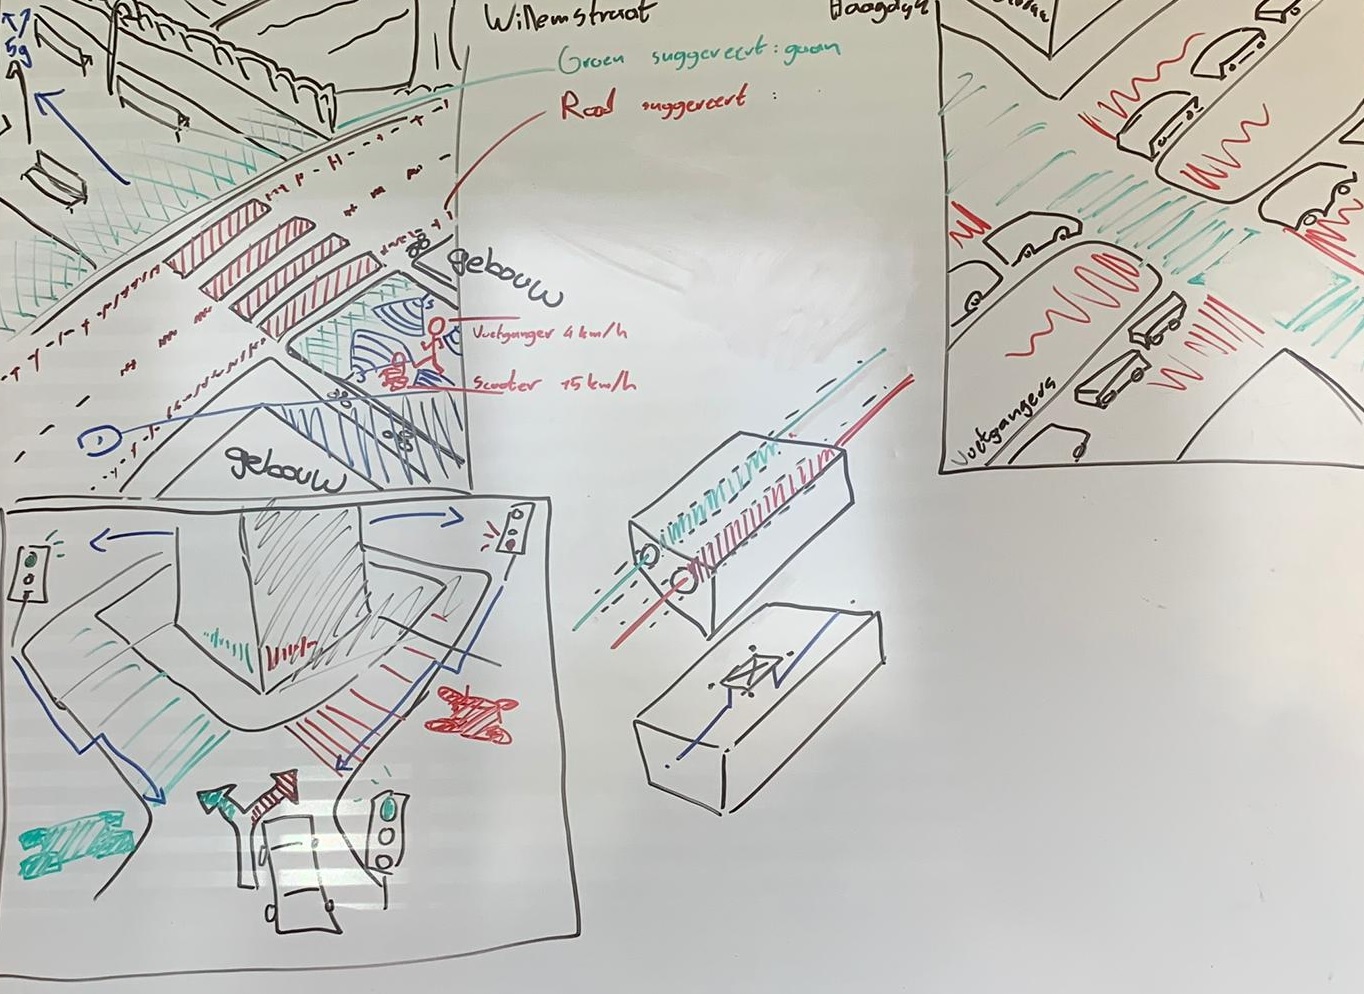 Willemstraat
Haagdijk
5g
Groen suggereert: gaan
Rood suggereert :
gebouw
Voetganger 4 km/h
Scooter 15 km/h
gebouw
Voetgangers